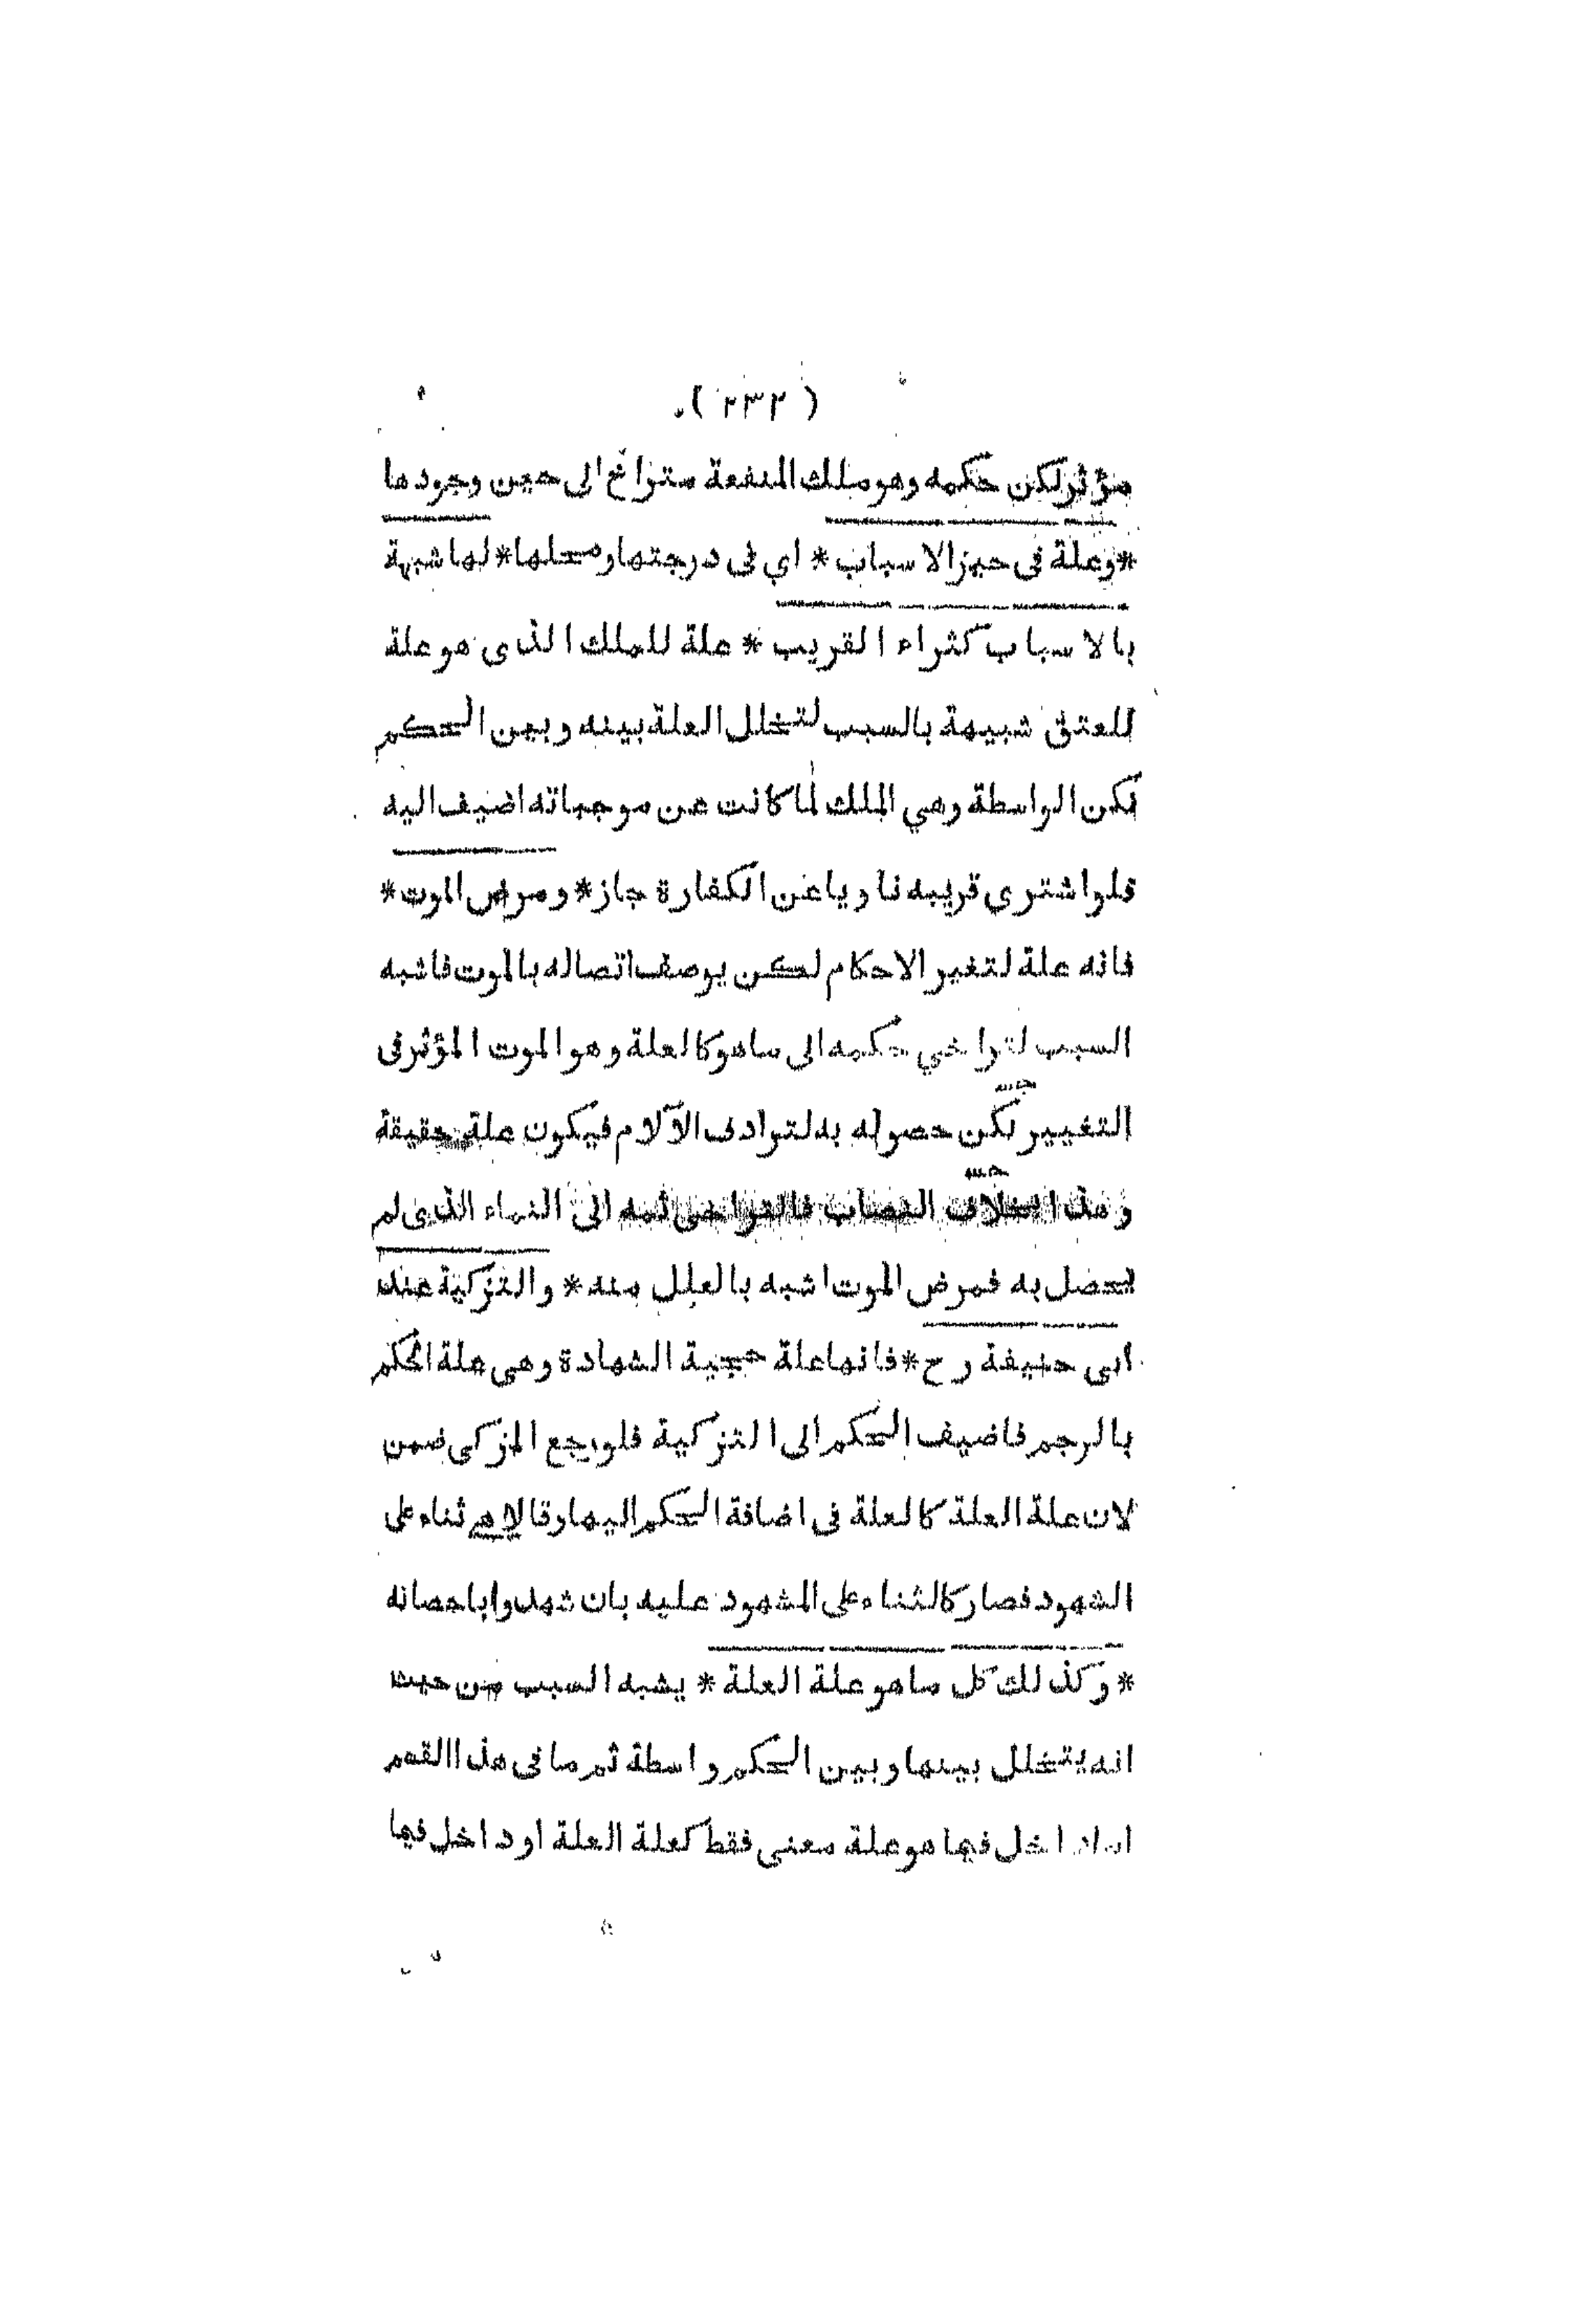 ( ٢٣٢ )
مؤثر لكن حكمه وهو ملك المنفعة متراخ الى حين وجودها
*وعلة فى حيز الاسباب * اي فى درجتها ومحلها * لها شبهة
بالاسباب كشراء القريب * علة للملك الذى هو علة
للعتق شبيهة بالسبب لتخلل العلة بينه وبين الحكم
لكن الواسطة وهي الملك لما كانت عن موجباته اضيف اليه
فلو اشترى قريبه ناويا عن الكفارة جاز * ومرض الموت *
فانه علة لتغير الاحكام لكن بوصف اتصاله بالموت فاشبه
السبب لتراخي حكمه الى ما هو كالعلة وهو الموت المؤثر فى
التغيير لكن حصوله به لتوادف الآلام فيكون علة حقيقة
وهذا بخلاف النصاب فالتراخى ثمه الى النماء الذى لم
يحصل به فمرض الموت اشبه بالعلل منه * والتزكية عند
ابى حنيفة رح * فانها علة حجية الشهادة وهى علة الحكم
بالرجم فاضيف الحكم الى التزكية فلو رجع المزكى ضمن
لان علة العلة كالعلة فى اضافة الحكم اليها وقالا هى ثناء على
الشهود فصار كالثناء على المشهود عليه بان شهدوا باحصانه
* وكذلك كل ما هو علة العلة * يشبه السبب من حيث
انه يتخلل بينها وبين الحكم واسطة ثم ما فى هذا القسم
اما داخل فيما هو علة معنى فقط كعلة العلة او داخل فيما